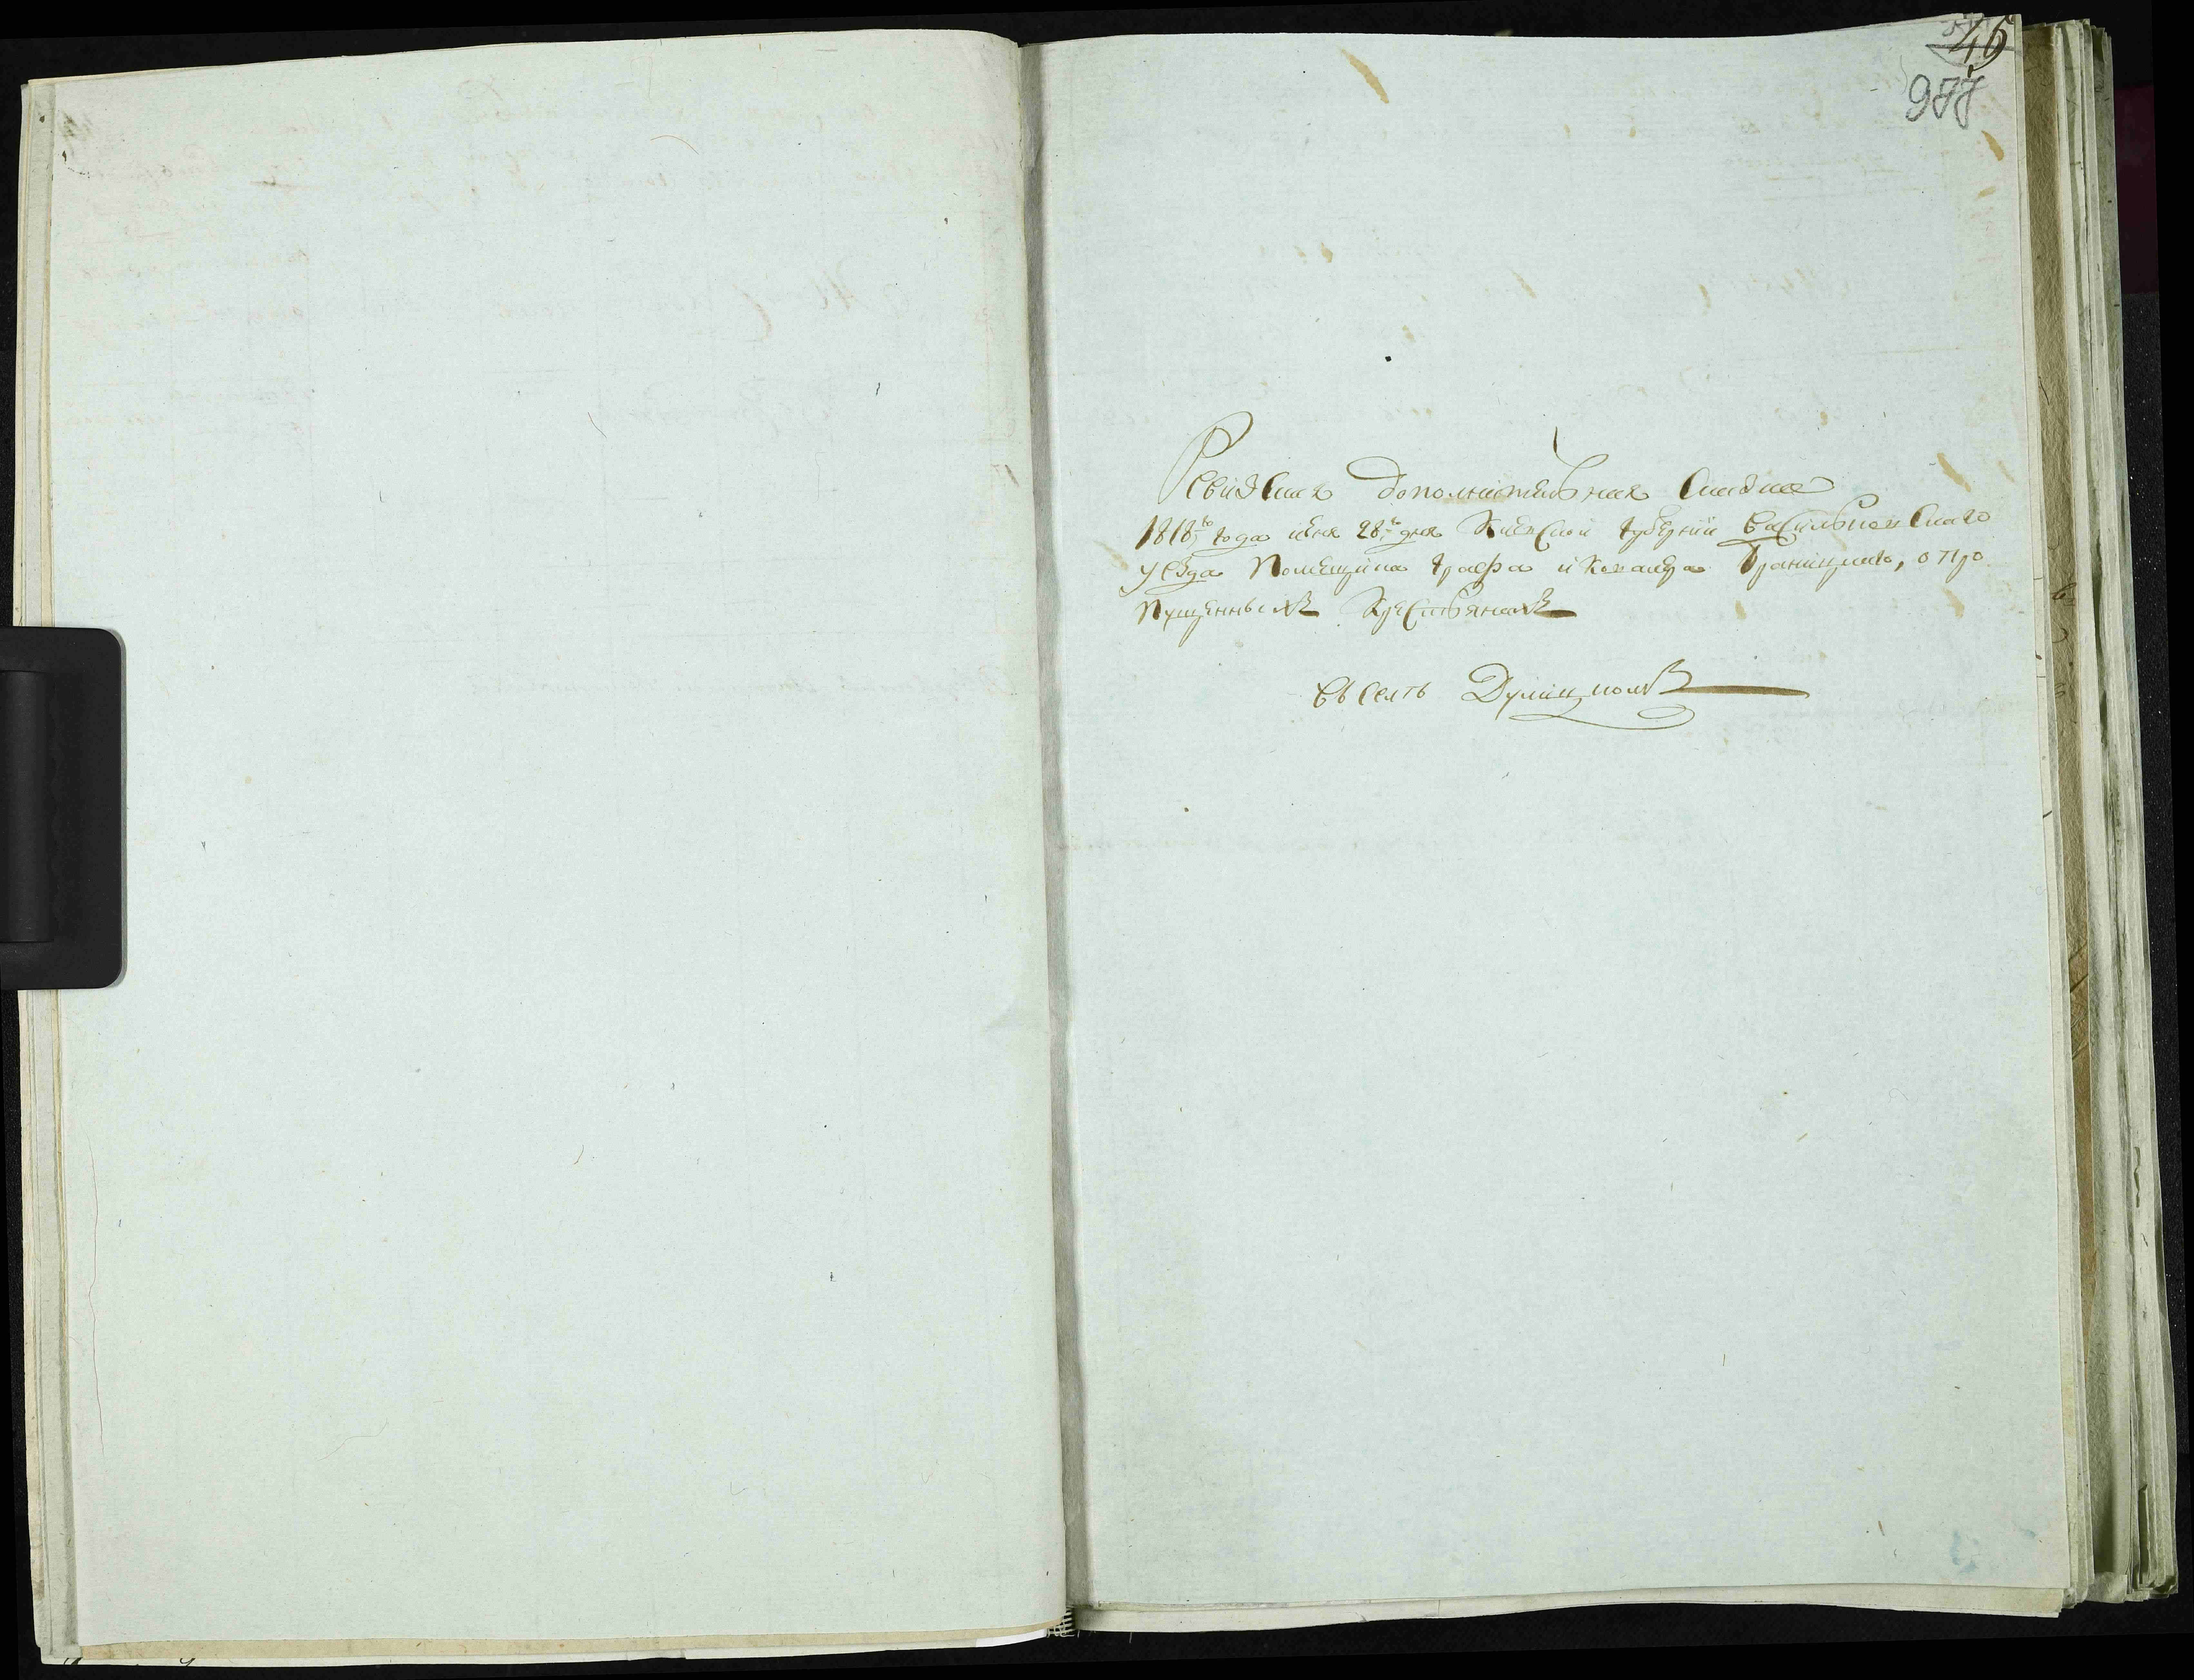 546
977
Ревизская дополнительная Сказка
1818го года июня 28го дня Киевской Губернии Васильковскаго
уезда Помещика Графа и Кавалера Браницкаго, о про
пущенныхъ Крестьянахъ
въ селѣ